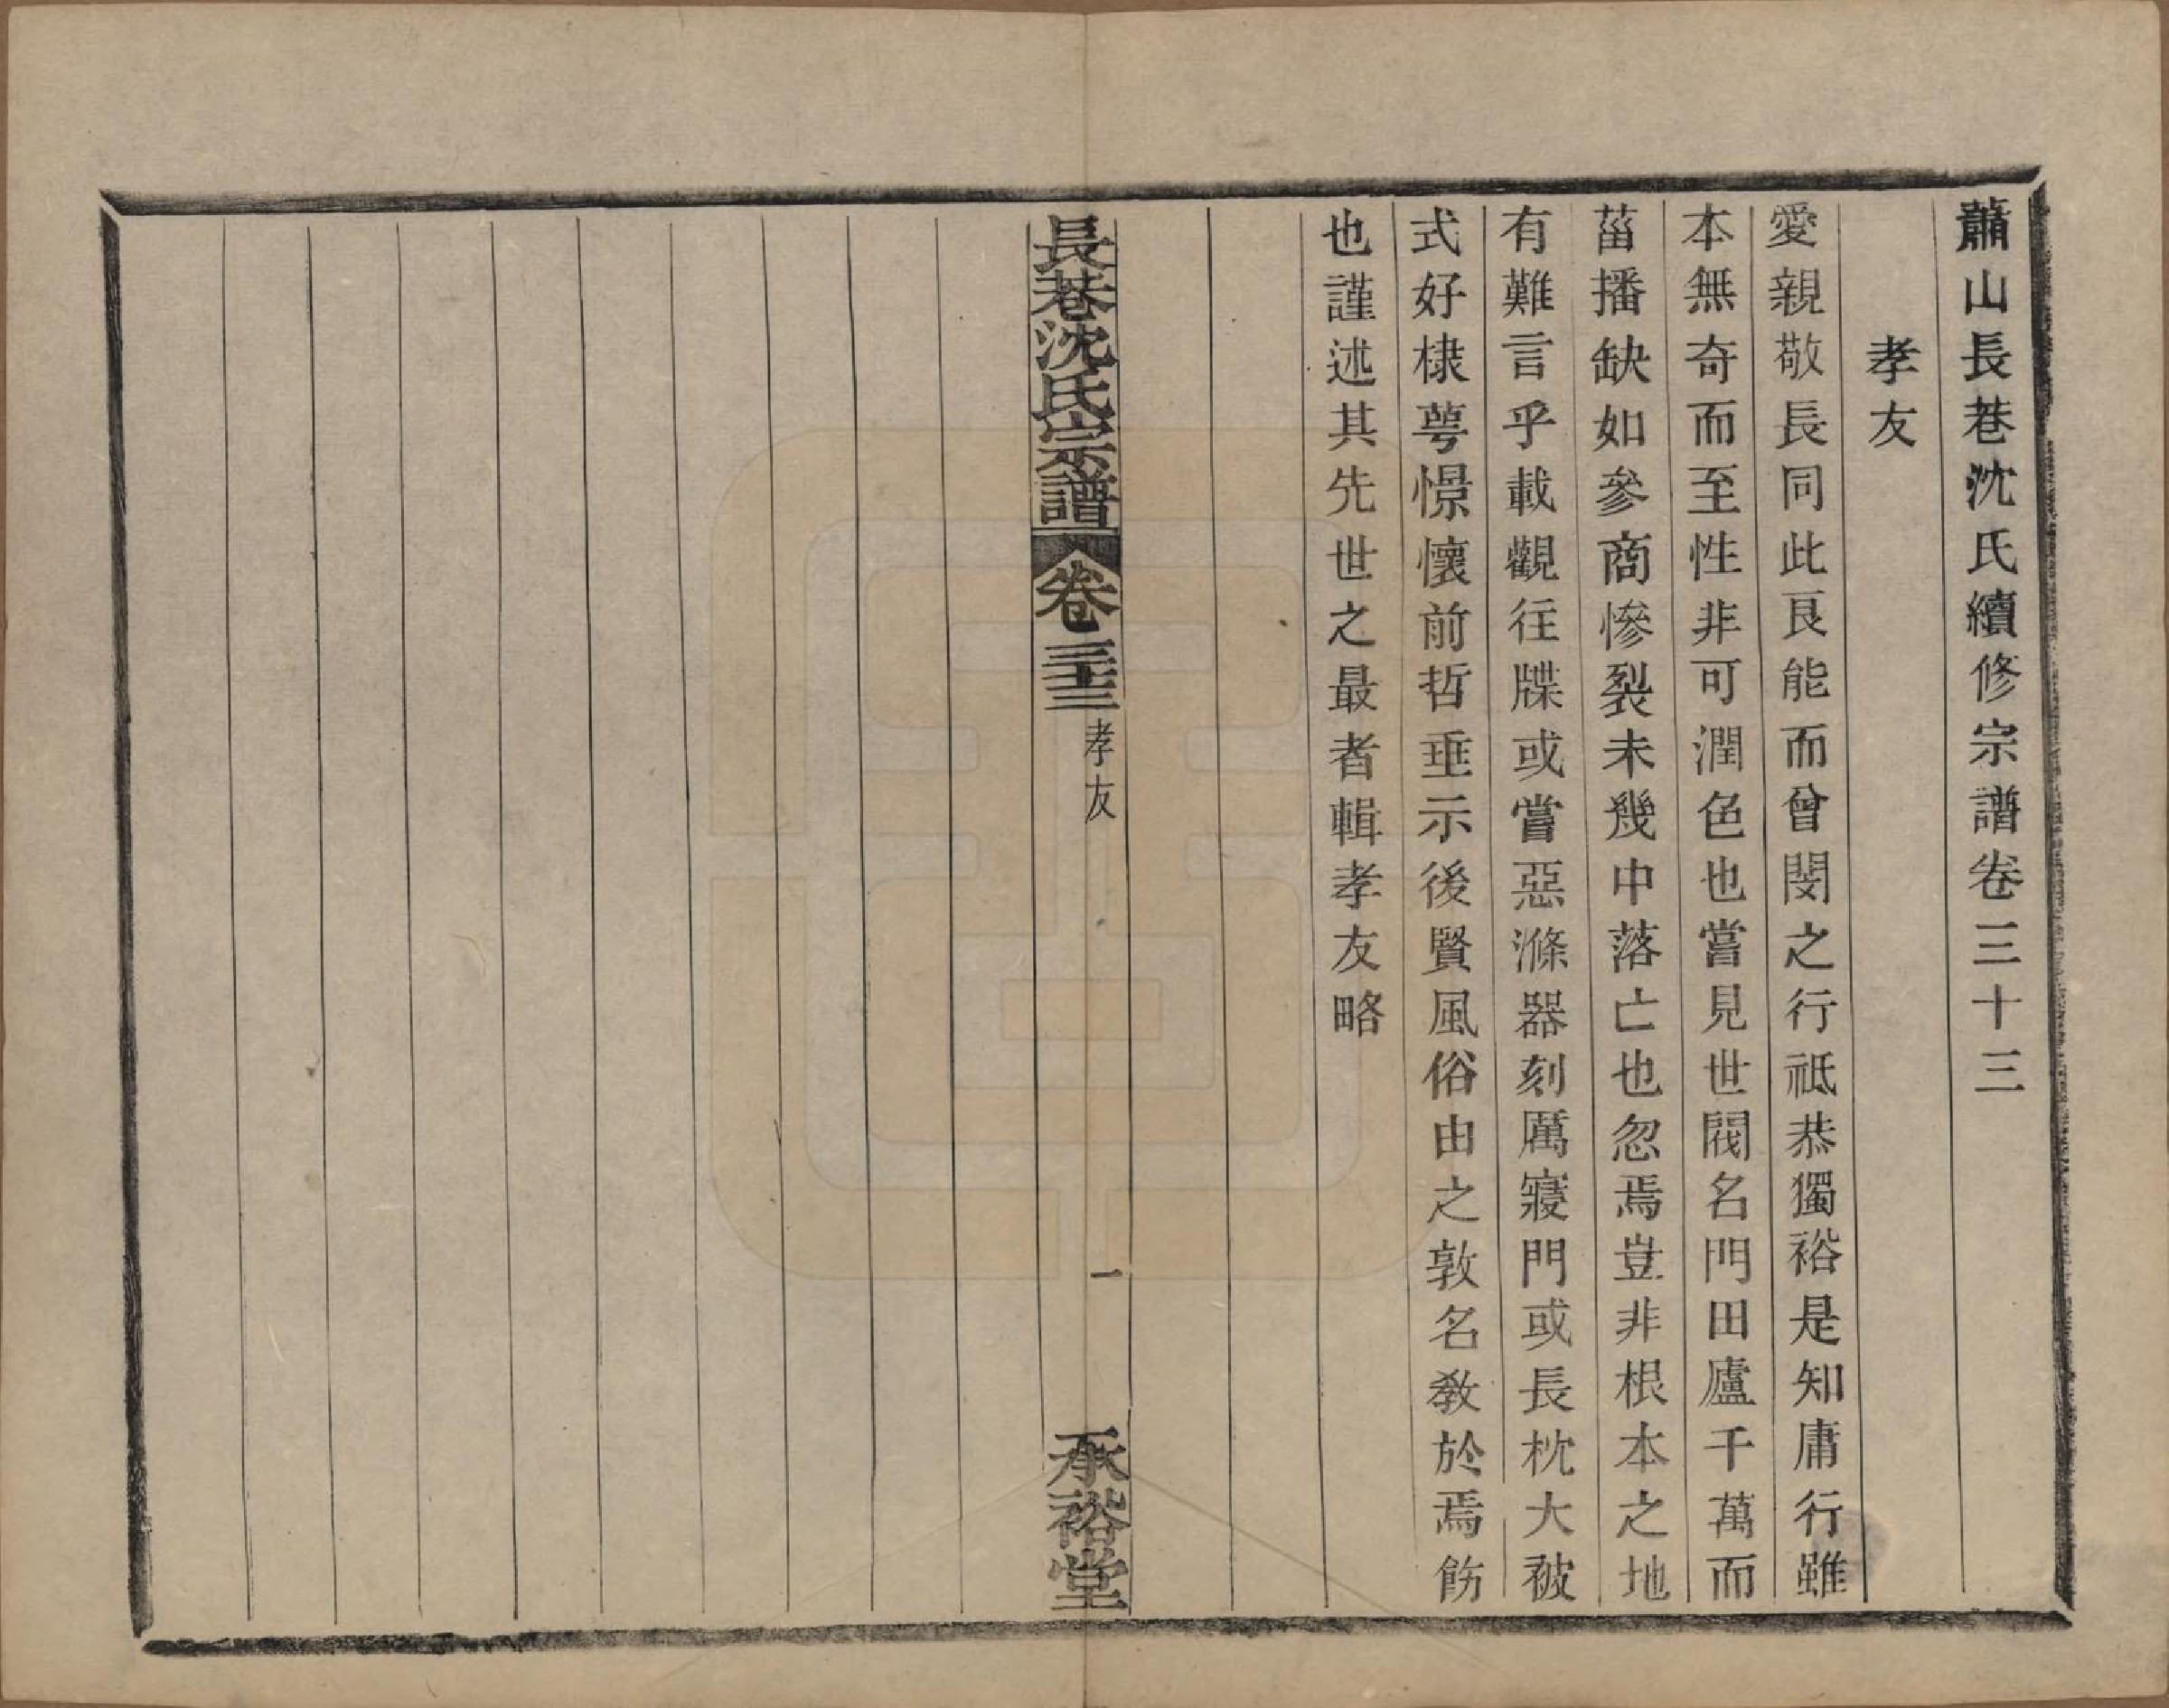 蕭山長巷沈氏續修宗譜卷三十三
孝友
愛親敬長同此良能而曾閔之行祗恭獨裕是知庸行雖
本無奇而至性非可潤色也嘗見世閥名門田廬千萬而
菑播缺如參商慘裂未幾中落亡也忽焉豈非根本之地
有難言乎載觀往牒或嘗惡滌器刻厲寢門或長枕大被
式好棣萼憬懷前哲垂示後賢風俗由之敦名教於焉飭
也謹述其先世之最者輯孝友略
長巷沈氏宗譜 卷三十三 孝友 一 承裕堂